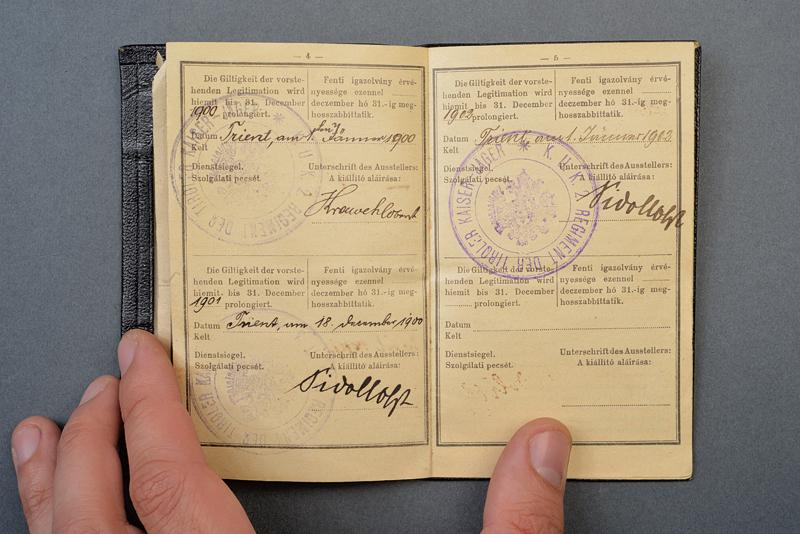 — 4 —
Die Giltigkeit der vorste-
henden Legitimation wird
hiemit bis 31. December
1900 prolongiert.
Fenti igazolvány érvé-
nyessége ezennel
deczember hó 31.-ig meg-
hosszabbittatik.
Datum Trient, am 1. Jänner 1900
Kelt
Dienstsiegel.
Szolgálati pecsét.
Unterschrift des Ausstellers:
A kiállitó aláirása:
REGIMENT DER TIROLER
Die Giltigkeit der vorste-
henden Legitimation wird
hiemit bis 31. December
1901 prolongiert.
Fenti igazolvány érvé-
nyessége ezennel
deczember hó 31.-ig meg-
hosszabbittatik.
Datum Trient, am 18. december 1900
Kelt
Dienstsiegel.
Szolgálati pecsét.
Unterschrift des Ausstellers:
A kiállitó aláirása:
REGIMENT DER TIROLER
— 5 —
Die Giltigkeit der vorste-
henden Legitimation wird
hiemit bis 31. December
1902 prolongiert.
Fenti igazolvány érvé-
nyessége ezennel
deczember hó 31.-ig meg-
hosszabbittatik.
Datum Trient, am 1. Jänner 1902
Kelt
Dienstsiegel.
Szolgálati pecsét.
Unterschrift des Ausstellers:
A kiállitó aláirása:
K. U. K. 2. REGIMENT DER TIROLER KAISER JÄGER
Die Giltigkeit der vorste-
henden Legitimation wird
hiemit bis 31. December
prolongiert.
Fenti igazolvány érvé-
nyessége ezennel
deczember hó 31.-ig meg-
hosszabbittatik.
Datum
Kelt
Dienstsiegel.
Szolgálati pecsét.
Unterschrift des Ausstellers:
A kiállitó aláirása: